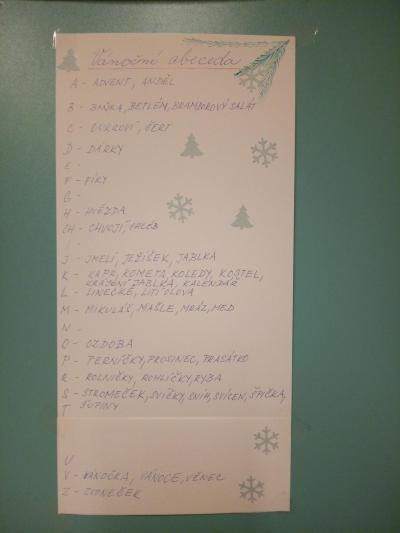 Vánoční abeceda
A - ADVENT, ANDĚL
B - BAŇKA, BETLÉM, BRAMBOROVÝ SALÁT
C - CUKROVÍ, ČERT
D - DÁRKY
E -
F - FÍKY
G -
H - HVĚZDA
CH - CHVOJÍ, CHLÉB
J - JMELÍ, JEŽÍŠEK, JABLKA
K - KAPR, KOMETA, KOLEDY, KOSTEL,
KRÁJENÍ JABLKA, KALENDÁŘ
L - LINECKÉ, LITÍ OLOVA
M - MIKULÁŠ, MAŠLE, MRÁZ, MED
N -
O - OZDOBA
P - PERNÍČKY, PROSINEC, PRASÁTKO
R - ROLNIČKY, ROHLÍČKY, RYBA
S - STROMEČEK, SVÍČKY, SNÍH, SVÍCEN, ŠPIČKA,
ŠUPINY
T
U
V - VÁNOČKA, VÁNOCE, VĚNEC
Z - ZVONEČEK